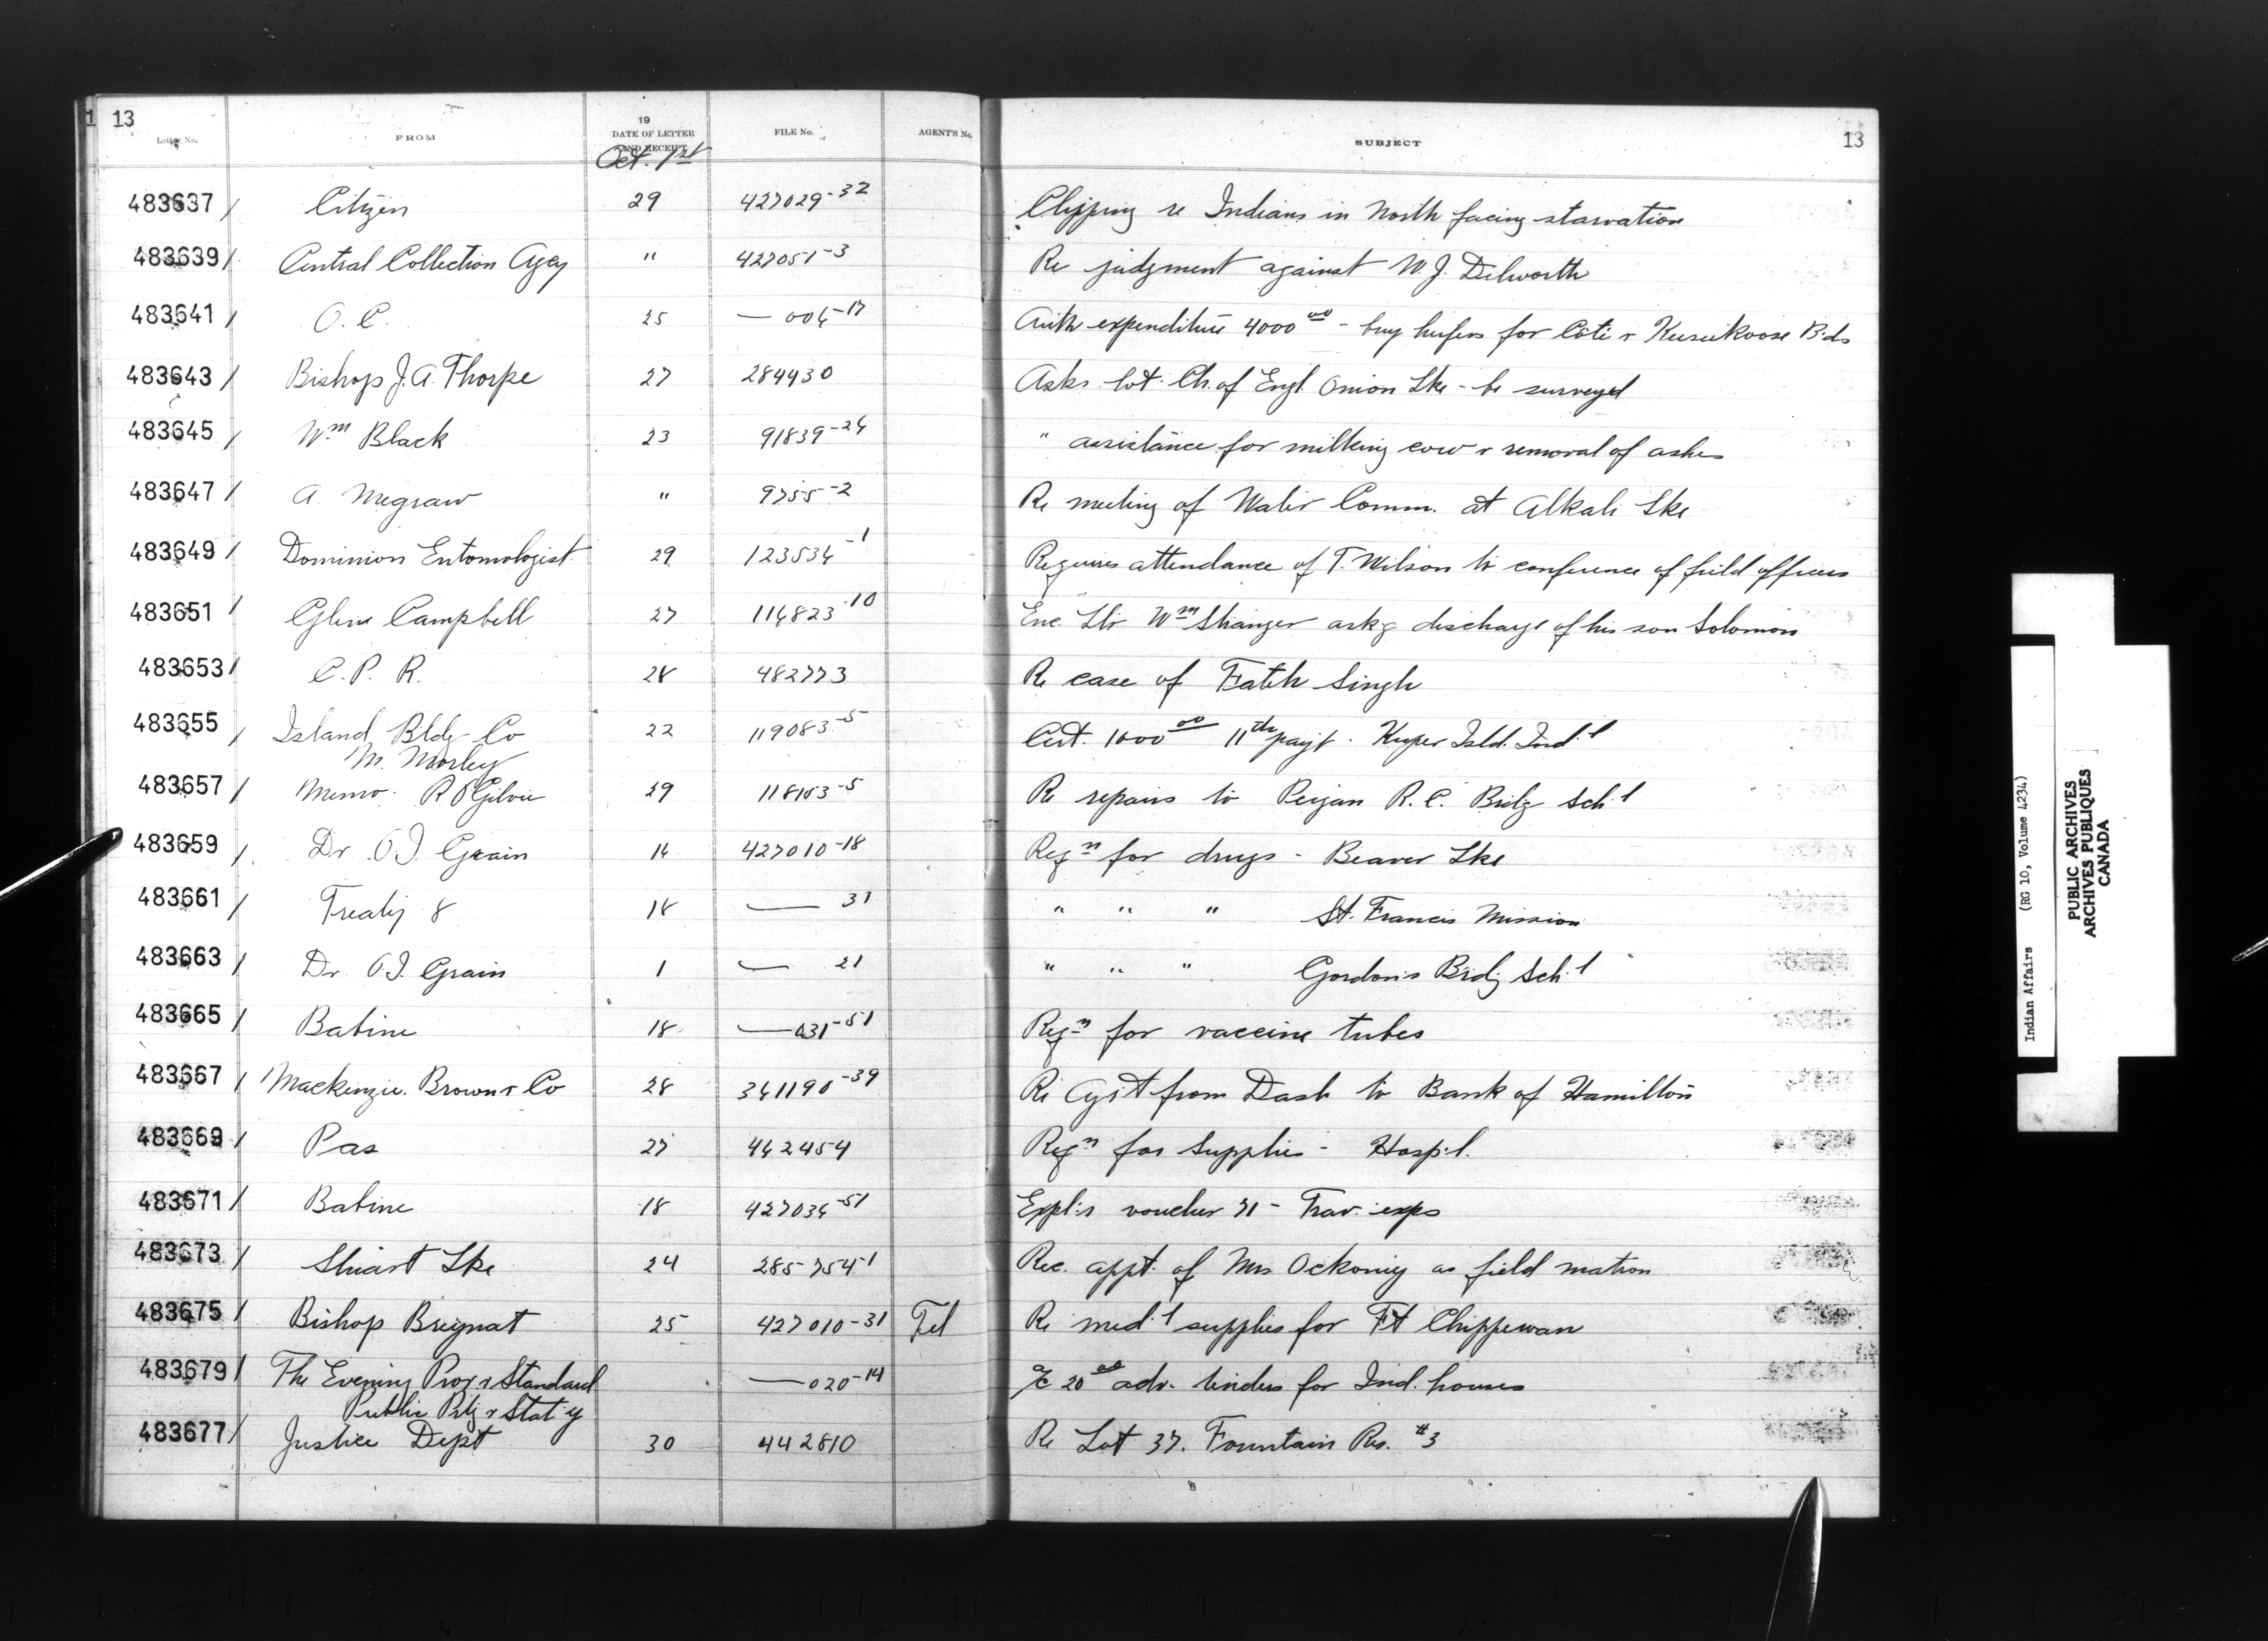 1 13
Letter No. FROM 19 DATE OF LETTER AND RECEIPT FILE No. AGENT'S No. SUBJECT 13
Oct. 1st
483637 / Citizen 29 427029-32 Clipping re Indians in North facing starvation
483639 / Central Collection Agcy " 427051-3 Re judgment against W.J. Dilworth
483641 / O.C. 25 — 006-17 Auth expenditure 4000 00 - buy heifers for Cote & Keeseekoose Bds
483643 / Bishop J.A. Thorpe 27 284430 Asks lot Ch. of Engl. Onion Lke - be surveyed
483645 / Wm Black 23 91839-26 " assistance for milking cow & removal of ashes
483647 / A. Megraw " 9755-2 Re meeting of Water Comm. at Alkali Lke
483649 / Dominion Entomologist 29 123534-1 Requires attendance of T. Wilson to conference of field officers
483651 / Glen Campbell 27 116823-10 Enc Ltr Wm Stranger askg discharge of his son Solomon
483653 / C.P.R. 28 482773 Re case of Fateh Singh
483655 / Island Bldg Co 22 119083-5 Cert. 1000 00 11th payt. Kuper Isld. Ind'l
M. Morley
483657 / Memo. R Ogilvie 29 118153-5 Re repairs to Peigan R.C. Brdg Sch'l
483659 / Dr. O.I. Grain 16 427010-18 Reqn for drugs - Beaver Lke
483661 / Treaty 8 18 — 31 " " " St. Francis Mission
483663 / Dr. O.I. Grain 1 — 21 " " " Gordon's Brdg Sch'l
483665 / Babine 18 — 031-51 Reqn for vaccine tubes
483667 / Mackenzie. Brown & Co 28 361190-39 Re Agst from Dash to Bank of Hamilton
483669 / Pas 27 442454 Reqn for supplies - Hosp'l.
483671 / Babine 18 427036-51 Expl's voucher 71 - Trav. exps
483673 / Stuart Lke 24 285754-1 Rec. appt. of Mrs Ockoniy as field matron
483675 / Bishop Breynat 25 427010-31 Tel Re med'l supplies for Ft Chippewan
483679 / The Evening Prog & Standard — 020-14 a/c 20 00 adv. tenders for Ind. houses
Public Ptg & Stat'y
483677 / Justice Dept 30 442810 Re Lot 37. Fountain Res. #3
Indian Affairs (RG 10, Volume 4234)
PUBLIC ARCHIVES
ARCHIVES PUBLIQUES
CANADA